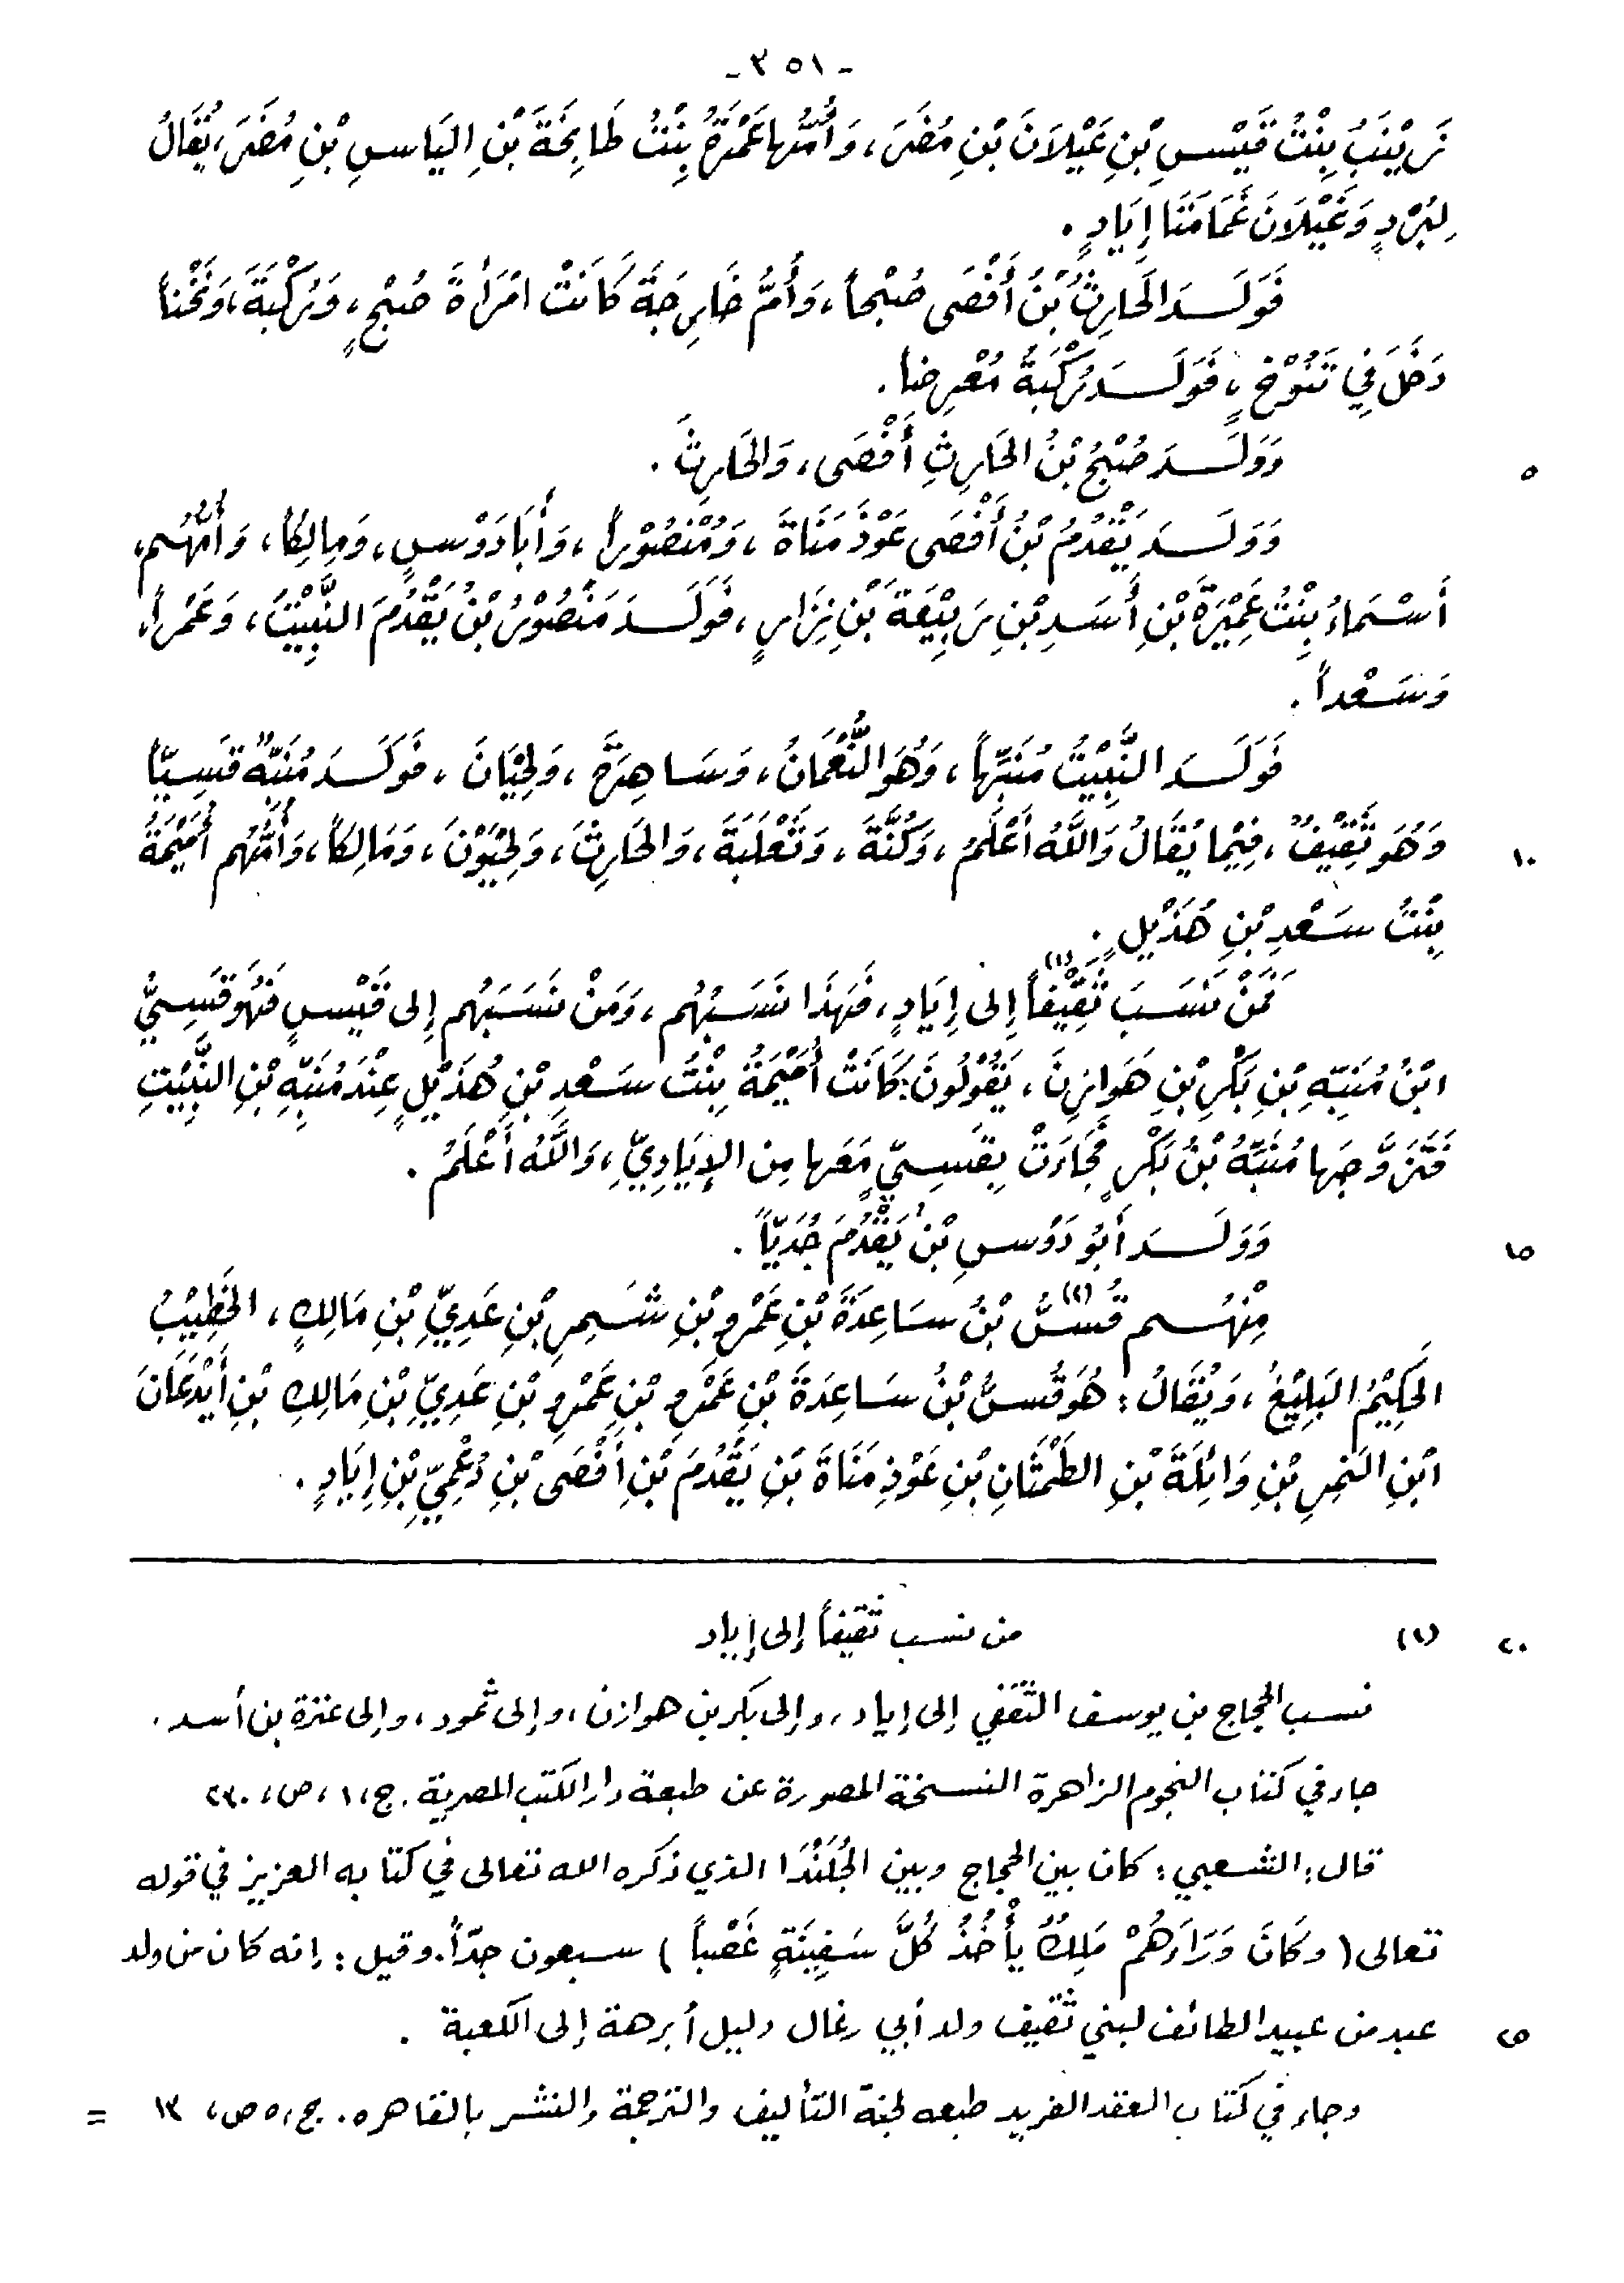 - ٣٥١ -
زَيْنَبُ بِنْتُ قَيْسِ بْنِ عَيْلَانَ بْنِ مُضَرَ، وَأُمُّها عَمْرَةُ بِنْتُ طَابِخَةَ بْنِ اليَاسِ بْنِ مُضَرَ، يُقَالُ
لِبُرْدٍ وَغَيْلَانَ غَمَامَتَا إِيَادٍ.
فَوَلَدَ الحَارِثُ بْنُ أَفْصَى صُبْحاً، وَأُمُّ خَارِجَةَ كَانَتْ امْرَأةَ صُبْحٍ، وَرُكْبَةَ،
دَخَلَ فِي تَنُوْخٍ، فَوَلَدَ رُكْبَةُ مُعْرِضاً.
وَوَلَدَ صُبْحُ بْنُ الحَارِثِ أَفْصَى، وَالحَارِثَ.
٥
وَوَلَدَ يَقْدُمُ بْنُ أَفْصَى عَوْذَ مَنَاةَ، وَمَنْصُوْراً، وَأَبَا دَوْسٍ، وَمَالِكاً، وَأُمُّهُم،
أَسْمَاءُ بِنْتُ عَمِيْرَةَ بْنِ أَسَدِ بْنِ رَبِيْعَةَ بْنِ نِزَارٍ، فَوَلَدَ مَنْصُوْرُ بْنُ يَقْدُمَ النَّبِيْتَ، وَعَمْراً،
وَسَعْداً.
فَوَلَدَ النَّبِيْتُ مُنَبِّهاً، وَهُوَ النُّعْمَانُ، وَسَاهِرَةَ، وَلِحْيَانَ، فَوَلَدَ مُنَبِّهٌ قَسِيّاً
وَهُوَ ثَقِيْفُ، فِيْمَا يُقَالُ وَاللَّهُ أَعْلَمُ، وَكُنَّةَ، وَثَعْلَبَةَ، وَالحَارِثَ، وَلِحْيَوْنَ، وَمَالِكاً، وَأُمُّهُم أُمَيْمَةُ
١٠
بِنْتُ سَعْدِ بْنِ هُذَيْلٍ.
مَنْ نَسَبَ ثَقِيْفاً (١) إِلى إِيَادٍ، فَهَذَا نَسَبُهُم، وَمَنْ نَسَبَهُم إِلى قَيْسٍ فَهُوَ قَسِيُّ
ابْنُ مُنَبِّهِ بْنِ بَكْرِ بْنِ هَوَازِنَ، يَقُوْلُونَ: كَانَتْ أُمَيْمَةُ بِنْتُ سَعْدِ بْنِ هُذَيْلٍ عِنْدَ مُنَبِّهِ بْنِ النَّبِيْتِ
فَتَزَوَّجَهَا مُنَبِّهُ بْنُ بَكْرٍ فَجَاءَتْ بِقَسِيٍّ مَعَها مِن الإِيَادِيِّ، وَاللَّهُ أَعْلَمُ.
وَوَلَدَ أَبُو دَوْسِ بْنُ يَقْدُمَ جُدَيّاً.
١٥
مِنْهُم قُسُّ (٢) بْنُ سَاعِدَةَ بْنِ عَمْرِو بْنِ شَمِرِ بْنِ عَدِيِّ بْنِ مَالِكٍ، الخَطِيْبُ
الحَكِيْمُ البَلِيْغُ، وَيُقَالُ: هُوَ قُسُّ بْنُ سَاعِدَةَ بْنِ عَمْرِو بْنِ عَمْرِو بْنِ عَدِيِّ بْنِ مَالِكِ بْنِ أَيْدَعَانَ
ابْنِ النَّمِرِ بْنِ وَائِلَةَ بْنِ الطَّمْثَانِ بْنِ عَوْذِ مَنَاةَ بْنِ يَقْدُمَ بْنِ أَفْصَى بْنِ دُعْمِيِّ بْنِ إِيَادٍ.
(١) من نسب ثَقيفاً إلى إياد
٢٠
نسب الحجاج بن يوسف الثّقفي إلى إياد، وإلى بكر بن هوازن، وإلى ثمود، وإلى عنزة بن أسد.
جاء في كتاب النجوم الزاهرة النسخة المصورة عن طبعة دار الكتب المصرية. ج، ١، ص، ٢٣٠
قال: الشعبي: كان بين الحجاج وبين الجُلَنْدَا الذي ذكره الله تعالى في كتابه العزيز في قوله
تعالى (وكَانَ وَرَاءَهُمْ مَلِكٌ يَأْخُذُ كُلَّ سَفِينَةٍ غَصْباً) سبعون جدّاً. وقيل: إنه كان من ولد
عبد من عبيد الطائف لبني ثَقيف ولد أبي رغال دليل أبرهة إلى الكعبة.
٢٥
وجاء في كتاب العقد الفريد طبعه لجنة التأليف والترجمة والنشر بالقاهره. ج، ٥ ص، ١٣ =